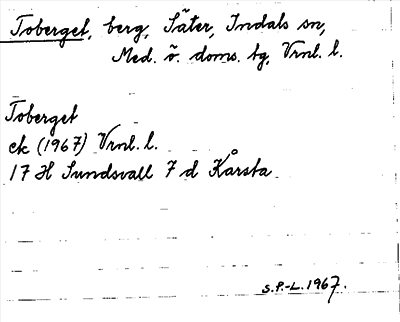 Toberget, berg, Säter, Indals sn,
Med. ö. doms. tg, Vrnl. l.
Toberget
ek (1967) Vrnl. l.
17 H Sundsvall 7 d Kårsta
S.P.-L. 1967.